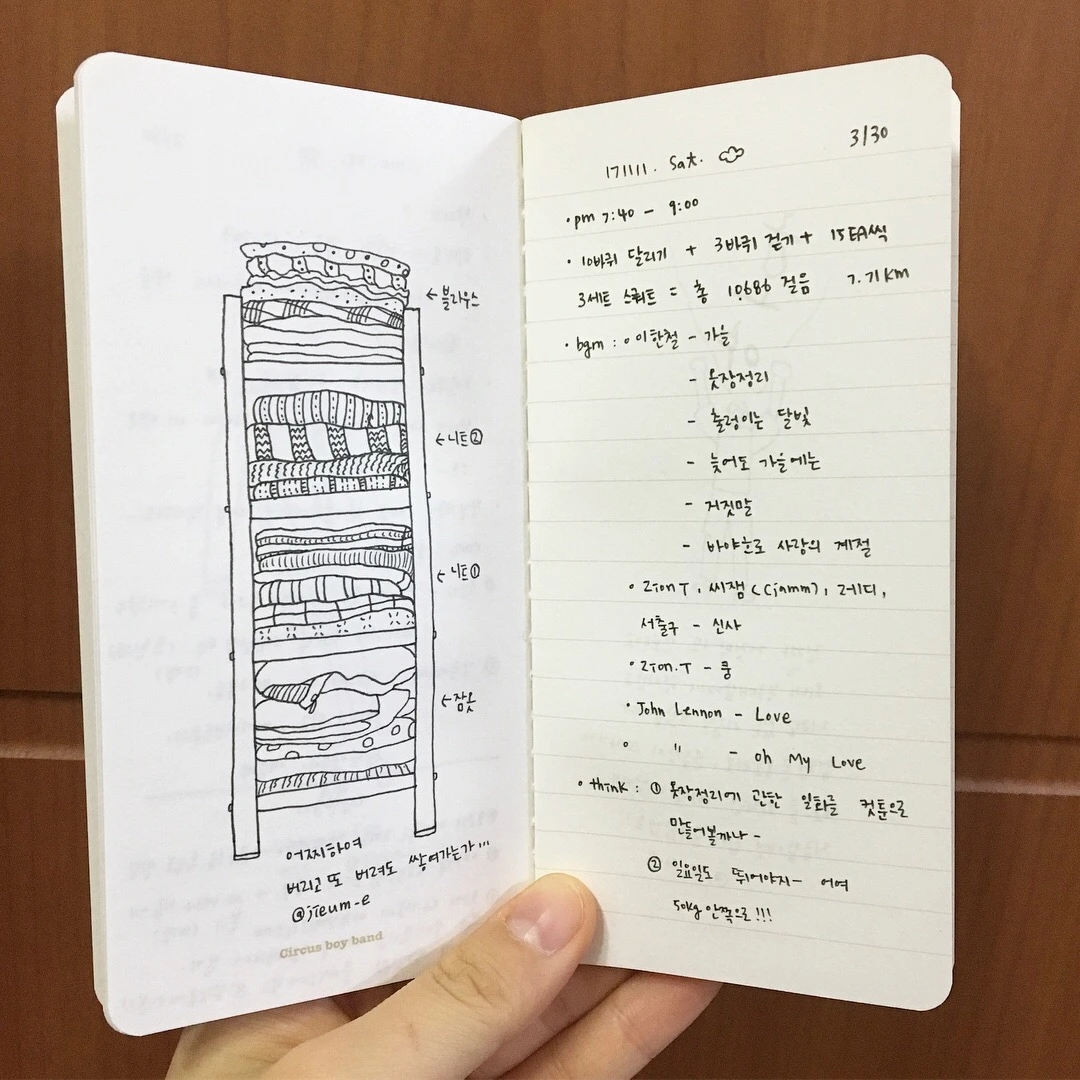 ← 블라우스
← 니트②
← 니트①
← 잠옷
어찌하여
버리고 또 버려도 쌓여가는가...
@jieum-e
Circus boy band
3/30
171111. Sat.
• pm 7:40 - 9:00
• 10바퀴 달리기 + 3바퀴 걷기 + 15EA씩
3세트 스쿼트 = 총 10,686 걸음 7.71km
• bgm : 이한철 - 가을
- 옷장정리
- 출렁이는 달빛
- 늦어도 가을에는
- 거짓말
- 바야흐로 사랑의 계절
• Zion T, 씨잼 (Cjamm), 레디,
서출구 - 신사
• Zion.T - 쿵
• John Lennon - Love
• " - Oh My Love
• think : ① 옷장정리에 관한 일화를 컷툰으로
만들어볼까나 -
② 일요일도 뛰어야지- 어여
50kg 안쪽으로!!!